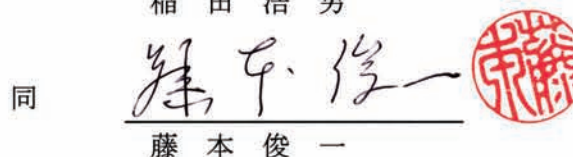 稲 田 浩 男
藤本俊一
同
藤 本 俊 一